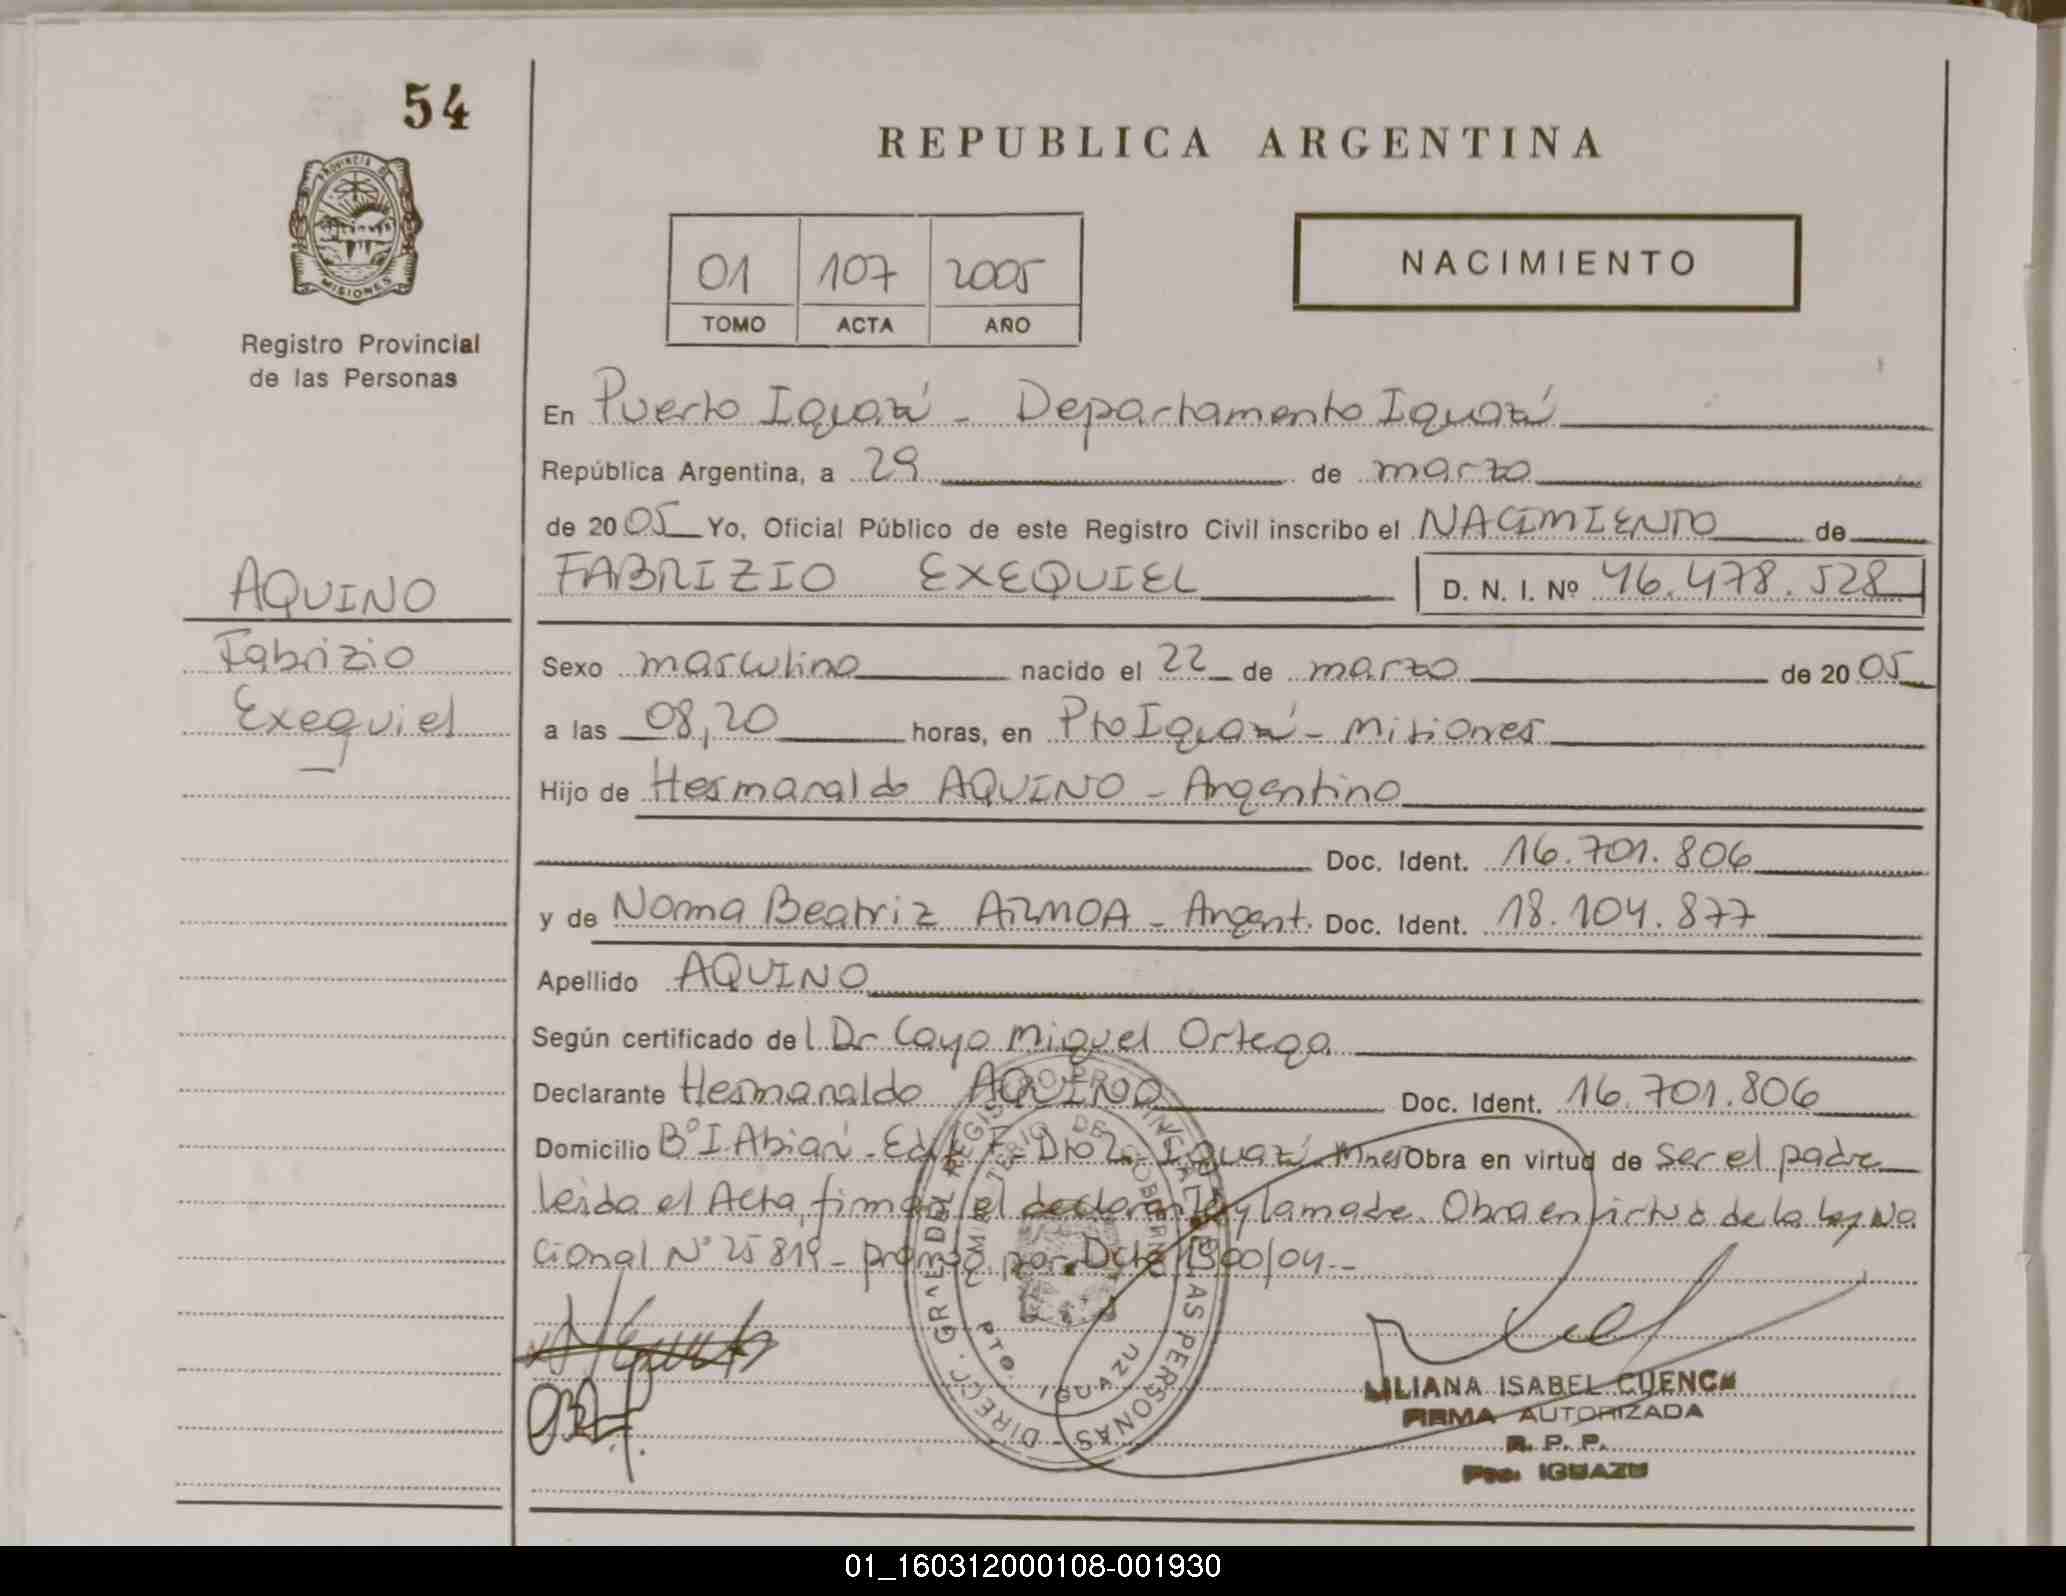 54
PROVINCIA DE
MISIONES
Registro Provincial
de las Personas
AQUINO
Fabrizio
Exequiel
REPUBLICA ARGENTINA
01 107 2005
TOMO ACTA AÑO
NACIMIENTO
En Puerto Iguazú - Departamento Iguazú
República Argentina, a 29 de marzo
de 2005 Yo, Oficial Público de este Registro Civil inscribo el NACIMIENTO de
FABRIZIO EXEQUIEL D. N. I. Nº 46.478.528
Sexo masculino nacido el 22 de marzo de 2005
a las 08,20 horas, en Pto Iguazú - Misiones
Hijo de Hermanaldo AQUINO - Argentino
Doc. Ident. 16.701.806
y de Norma Beatriz ARMOA - Argent. Doc. Ident. 18.104.877
Apellido AQUINO
Según certificado del Dr Cayo Miguel Ortega
Declarante Hermanaldo AQUINO Doc. Ident. 16.701.806
Domicilio Bº I Abiarí - Edif F - Dto 2 - Iguazú. Mnes Obra en virtud de ser el padre
leida el Acta, firman el declarante y la madre. Obra en virtud de la ley Na
cional Nº 25819 - por Dcto 1300/04.-
DIRECC. GRAL DEL REGISTRO PROVINCIAL DE LAS PERSONAS
MINISTERIO DE GOBIERNO
PTO. IGUAZU
LILIANA ISABEL CUENCA
FIRMA AUTORIZADA
R. P. P.
Pto. IGUAZU
01_160312000108-001930